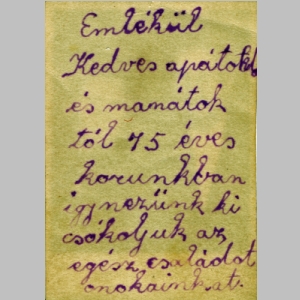 Emlékül
Kedves apátokl
és mamátok
tól 75 éves
korunkban
igy nezünk ki
csókoljuk az
egész családot
onokainkat.